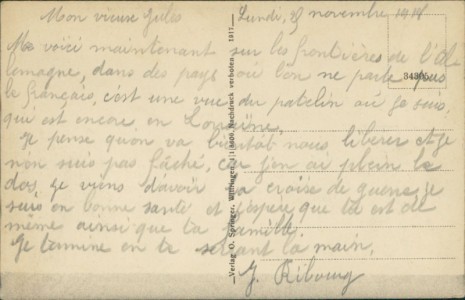 Mon vieux Jules
Lundi, 8 novembre 1918
Me voici maintenant sur les frontières de l'Al
lemagne, dans des pays où l'on ne parle pas
le français, c'est une vue du patelin où je suis,
qui est encore en Lorraine.
Je pense qu'on va bientôt nous libérer et je
n'en suis pas fâché, car j'en ai plein le
dos, je viens d'avoir la croise de guerre, je
suis en bonne santé et j'espère que tu est de
même ainsi que ta famille.
Je termine en te serrant la main,
J. Ribourg
Verlag O. Springer, Nachdruck verboten. 1917